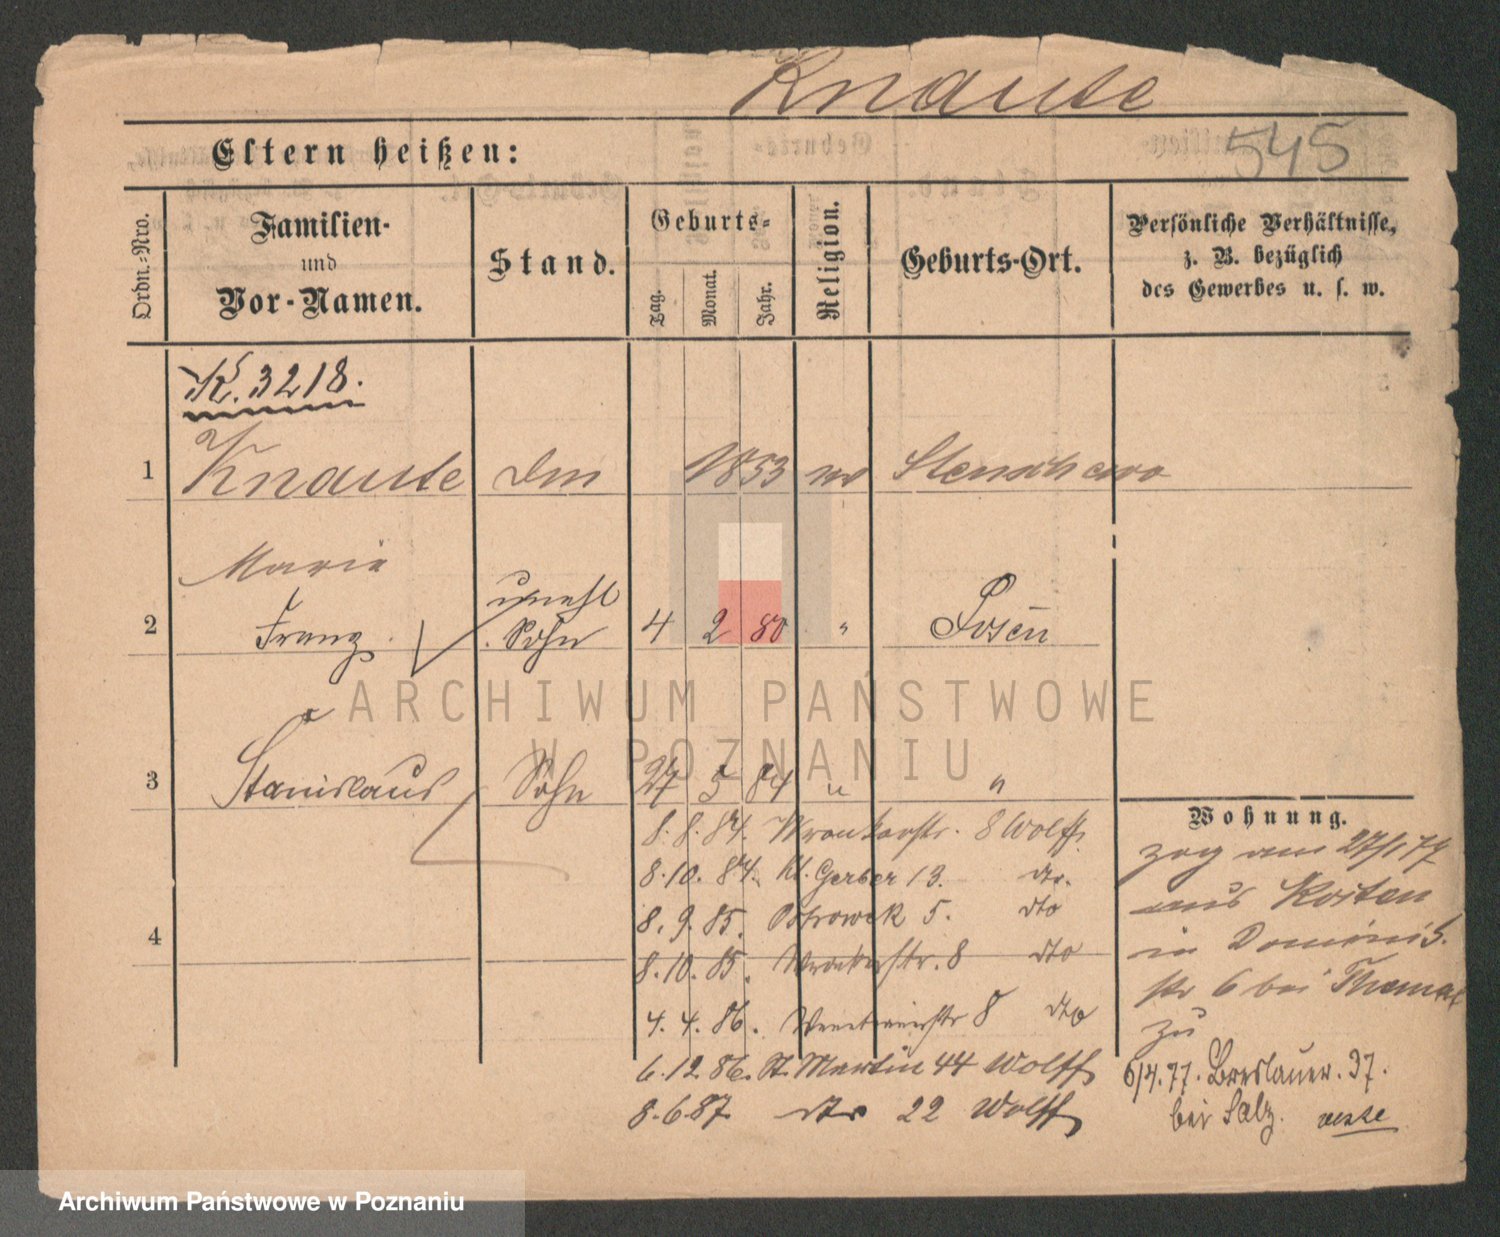 Knaute
545
Eltern heißen:
Ordn.-Nro.
Familien-
und
Vor-Namen.
Stand.
Geburts-
Tag.
Monat.
Jahr.
Religion.
Geburts-Ort.
Persönliche Verhältnisse,
z. B. bezüglich
des Gewerbes u. s. w.
K. 3218.
1 Knaute 1853
Marie
2 Franz unehl
Sohn 4 2 80 " Posen
3 Stanislaus Sohn 27 5 84 " "
8.8.84. Wronkerstr. 8 Wolff
8.10.84. Kl. Gerber 13. dto.
8.9.85. Ostrowek 5. dto
8.10.85. Wronkerstr. 8 dto
4
4.4.86. 8 dto
6.12.86. St. Martin 44 Wolff
8.6.87 dto 22 Wolff
Wohnung.
zog am
aus Kosten
in Dominik.
str 6 bei Thomas
zu
6/4.77. Breslauer. 37.
bei Salz.
ARCHIWUM PAŃSTWOWE
W POZNANIU
Archiwum Państwowe w Poznaniu